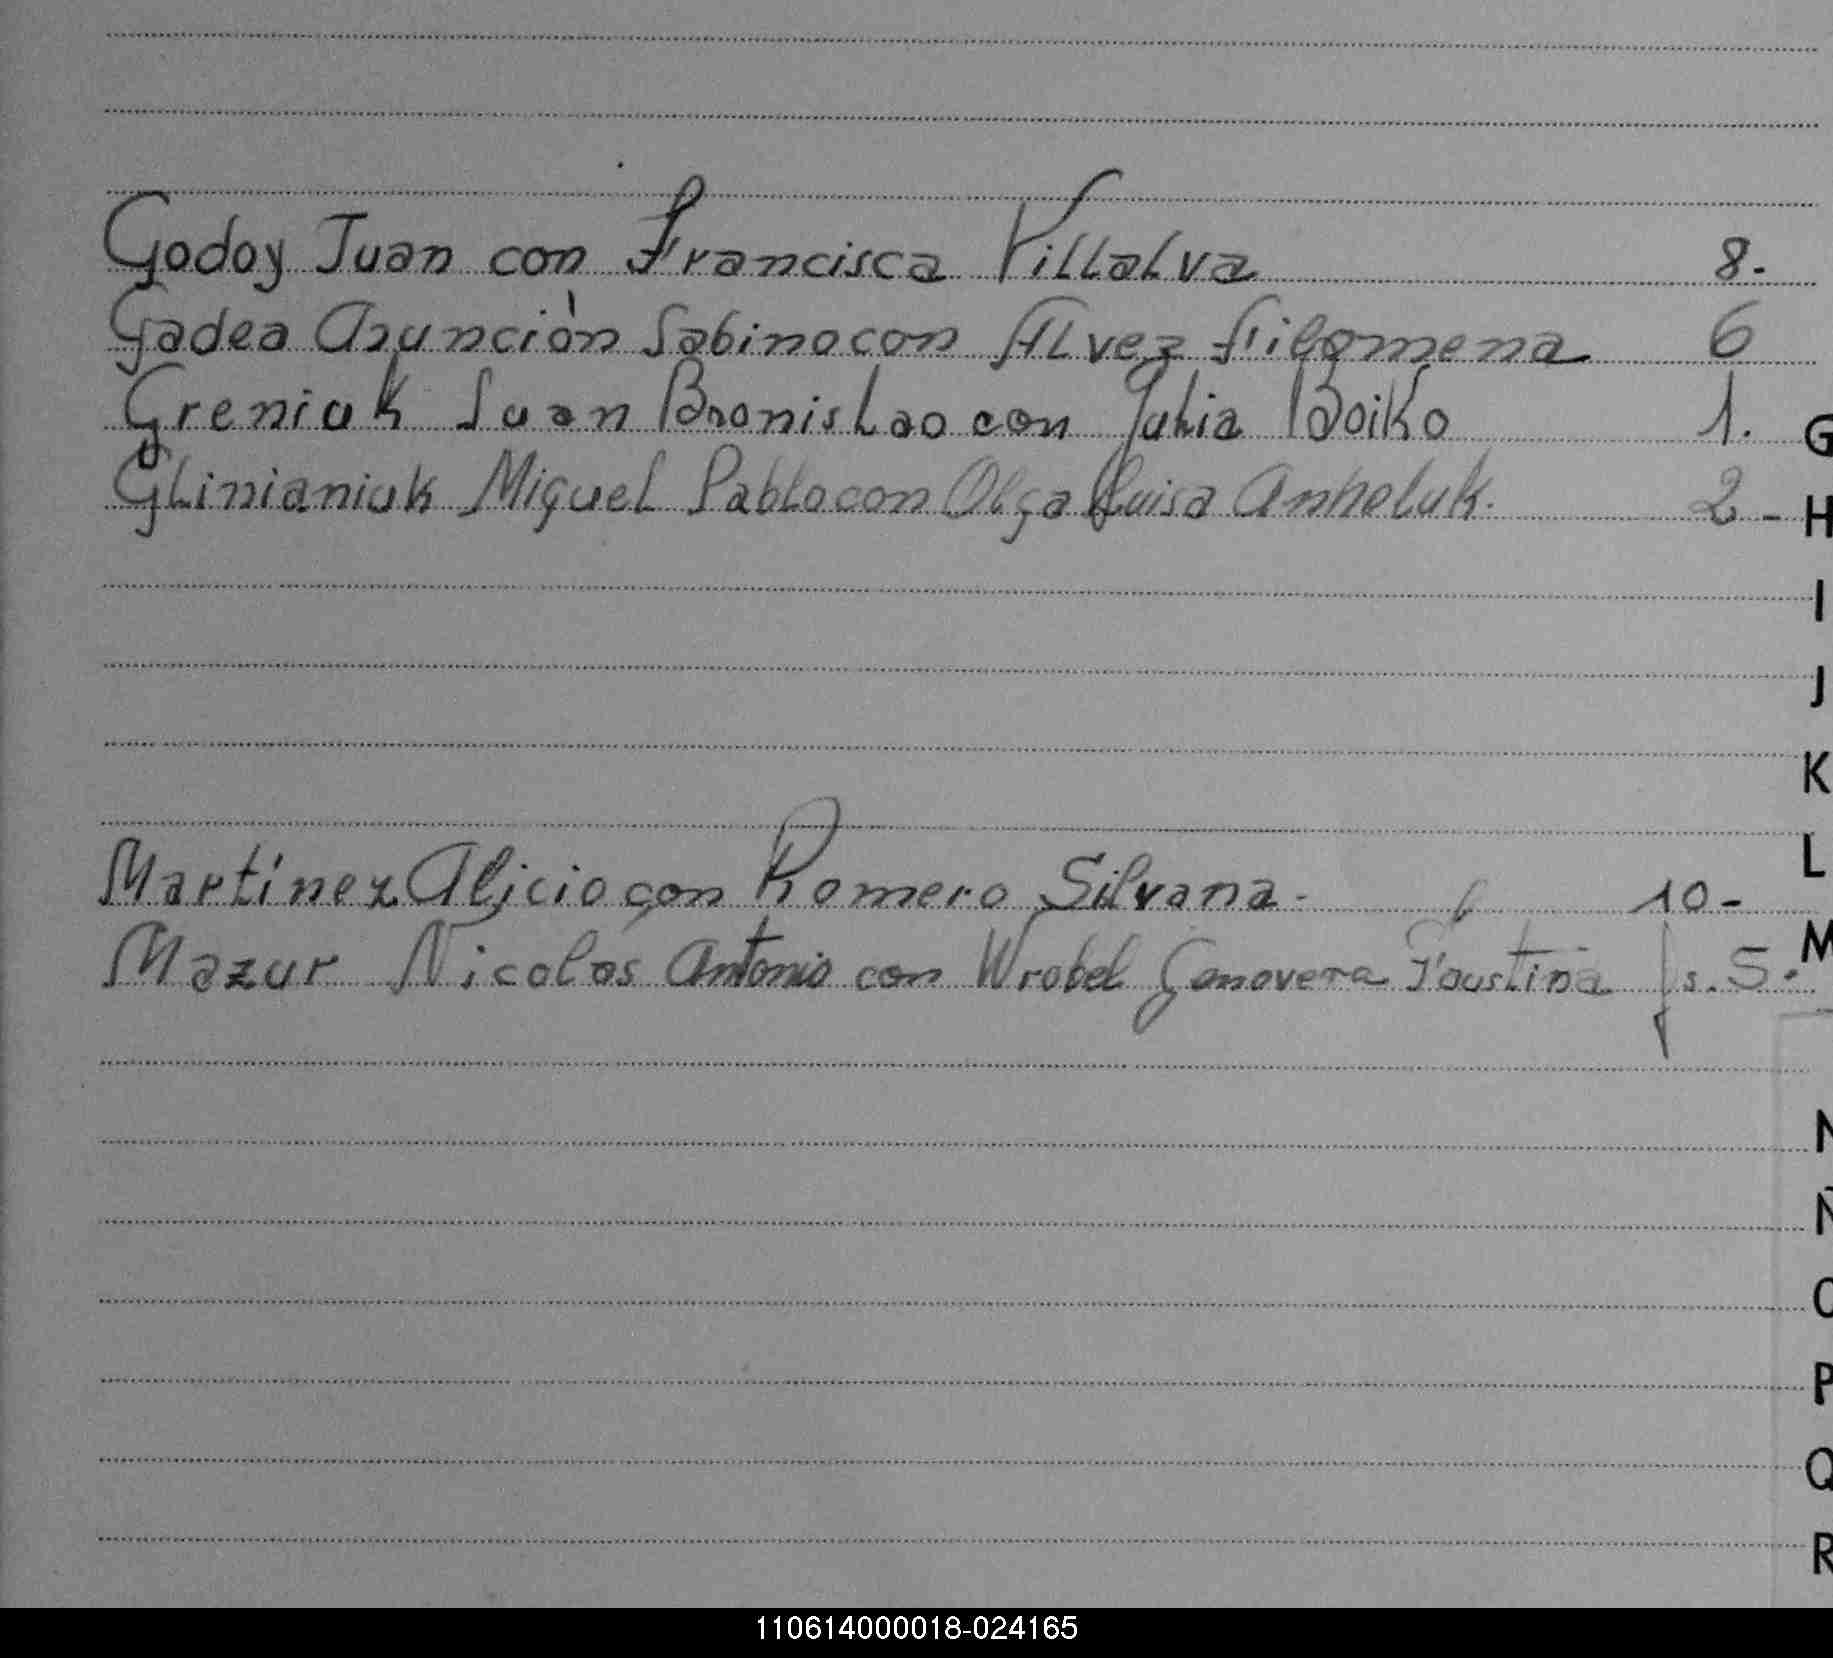 Godoy Juan con Francisca Villalva 8.
Gadea Asunción Sabino con Alvez Filomena 6
Greniuk Juan Bronislao con Julia Boiko 1.
G
Glinianiuk Miguel Pablo con Olga Luisa Anheluk. 2-
H
I
J
K
L
Martínez Alicio con Romero Silvana- 10-
M
Mazur Nicolás Antonio con Wrobel Genoveva Faustina fs. 5.
N
Ñ
O
P
Q
R
110614000018-024165